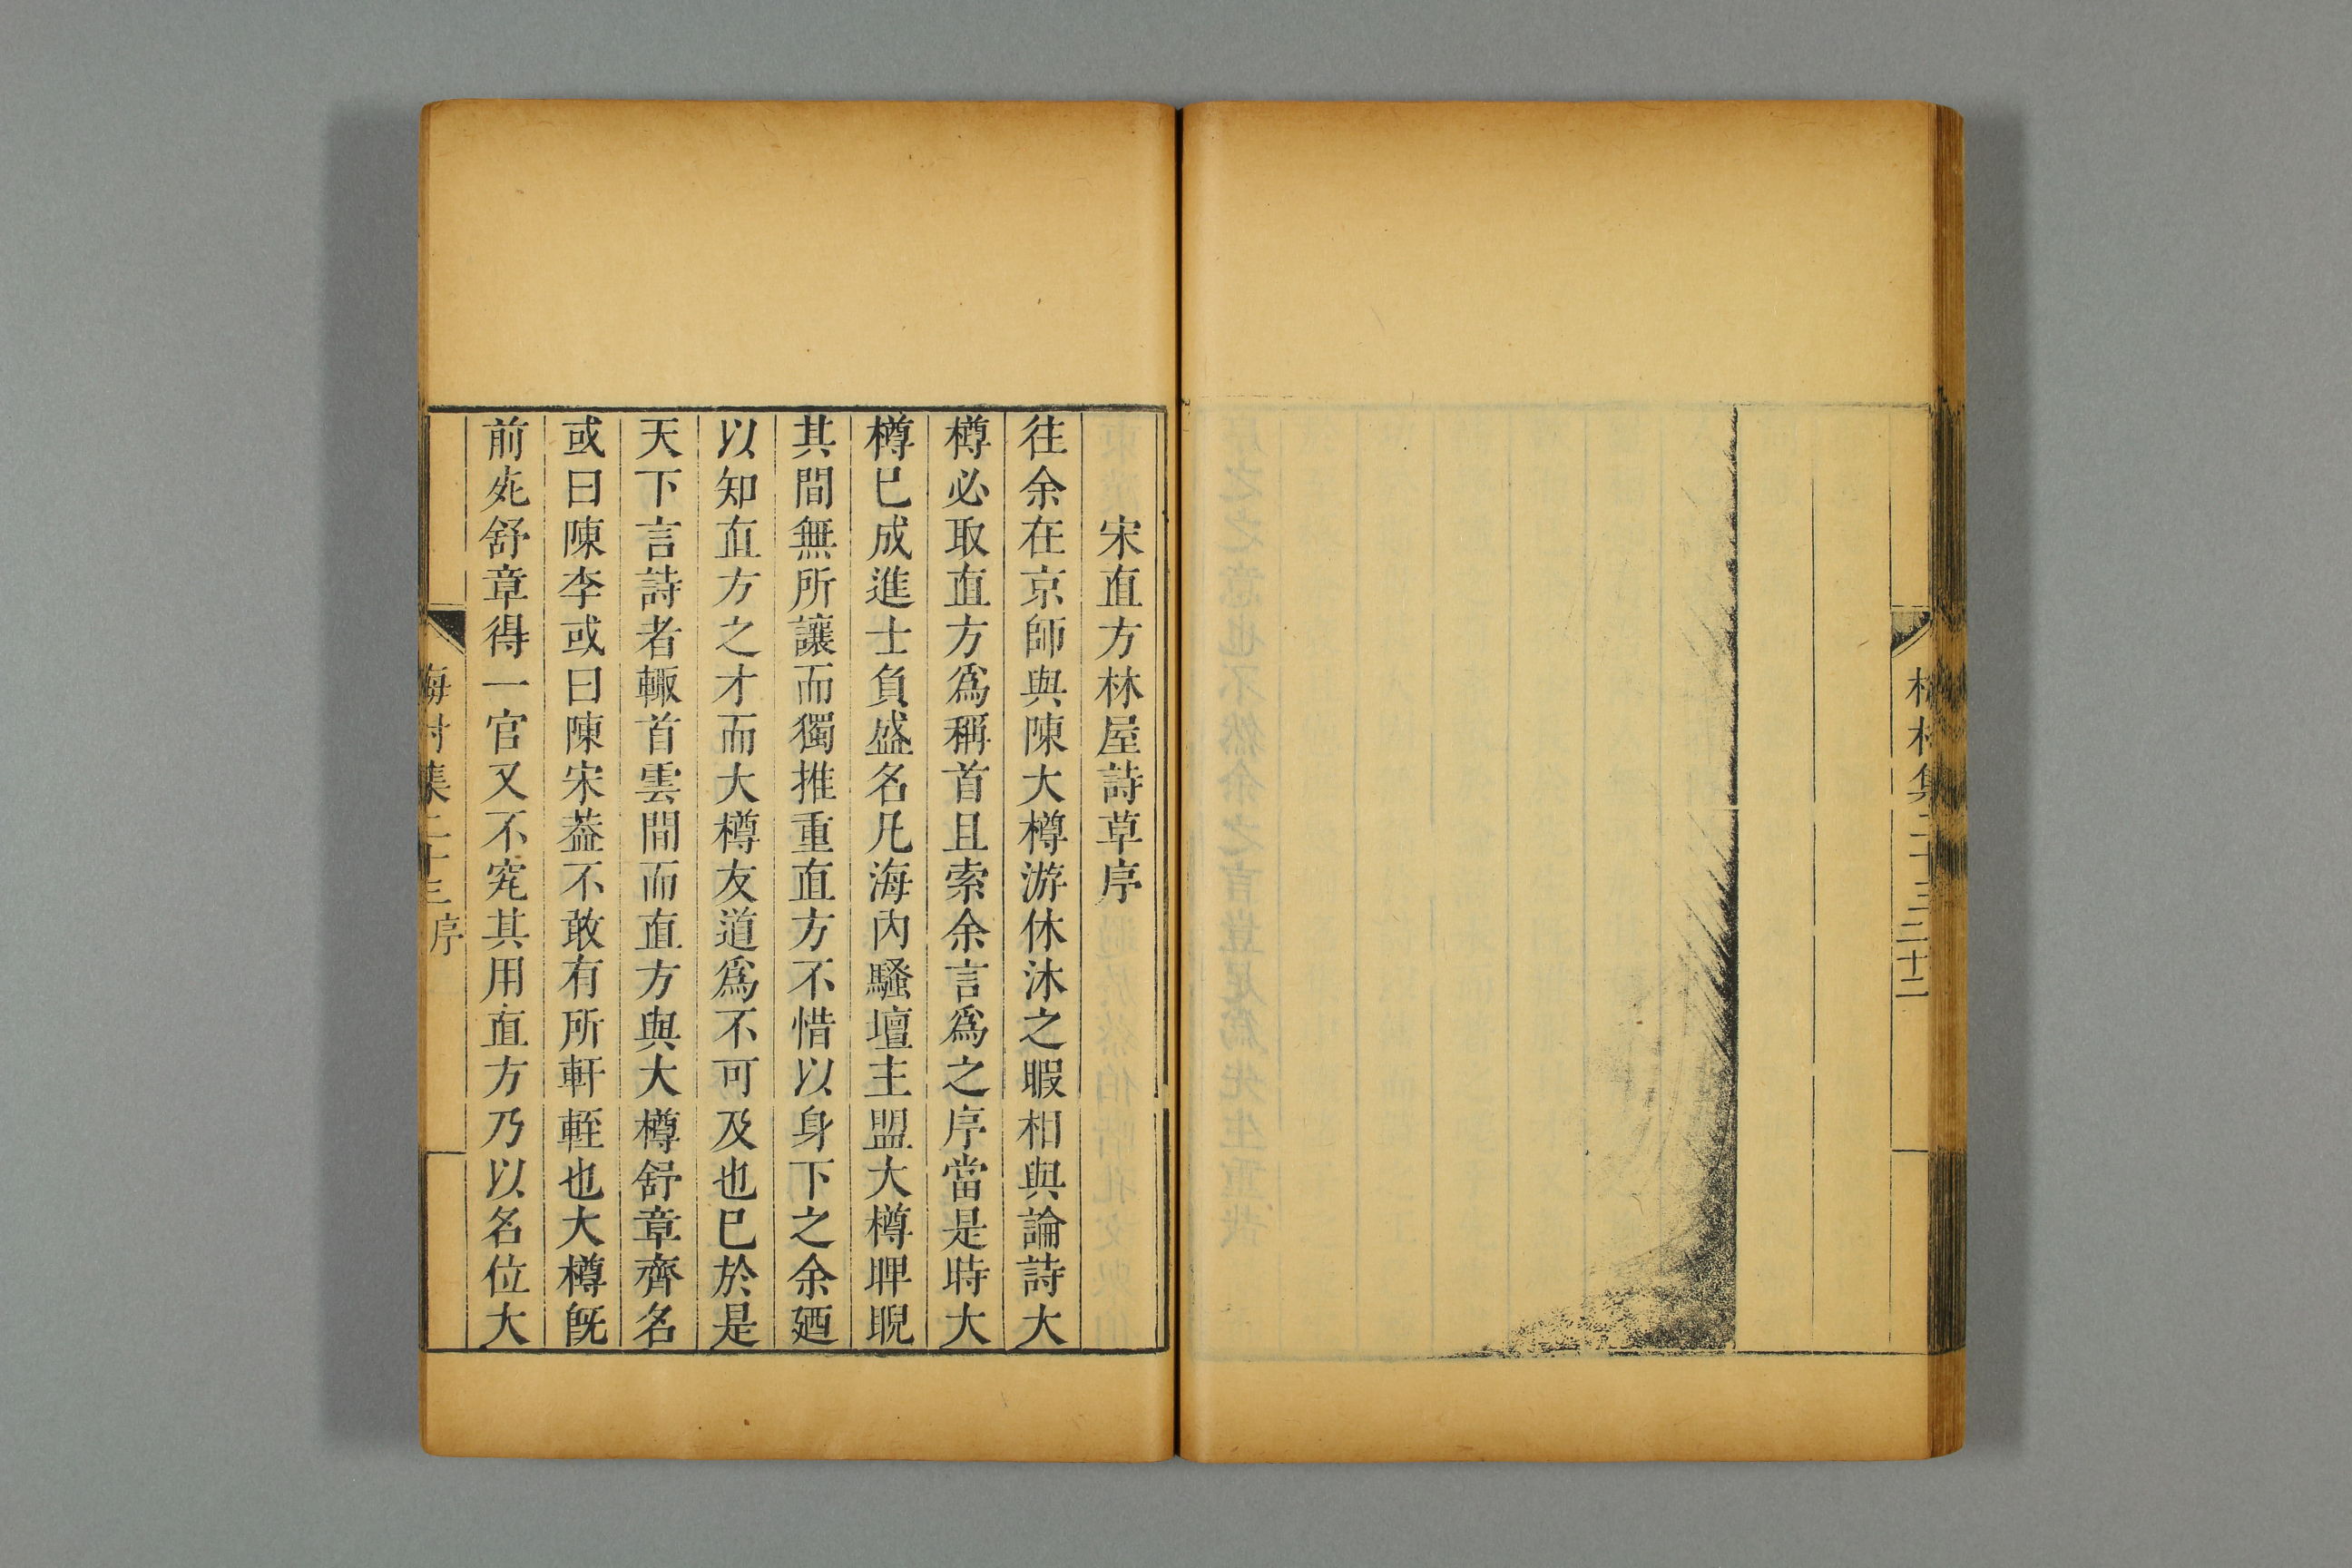 梅村集二十三 二十二
宋直方林屋詩草序
往余在京師與陳大樽游休沐之暇相與論詩大
樽必取直方爲稱首且索余言爲之序當是時大
樽已成進士負盛名凡海內騷壇主盟大樽睥睨
其間無所讓而獨推重直方不惜以身下之余廼
以知直方之才而大樽友道爲不可及也已於是
天下言詩者輒首雲間而直方與大樽舒章齊名
或曰陳李或曰陳宋葢不敢有所軒輊也大樽旣
前死舒章得一官又不究其用直方乃以名位大
梅村集二十三序